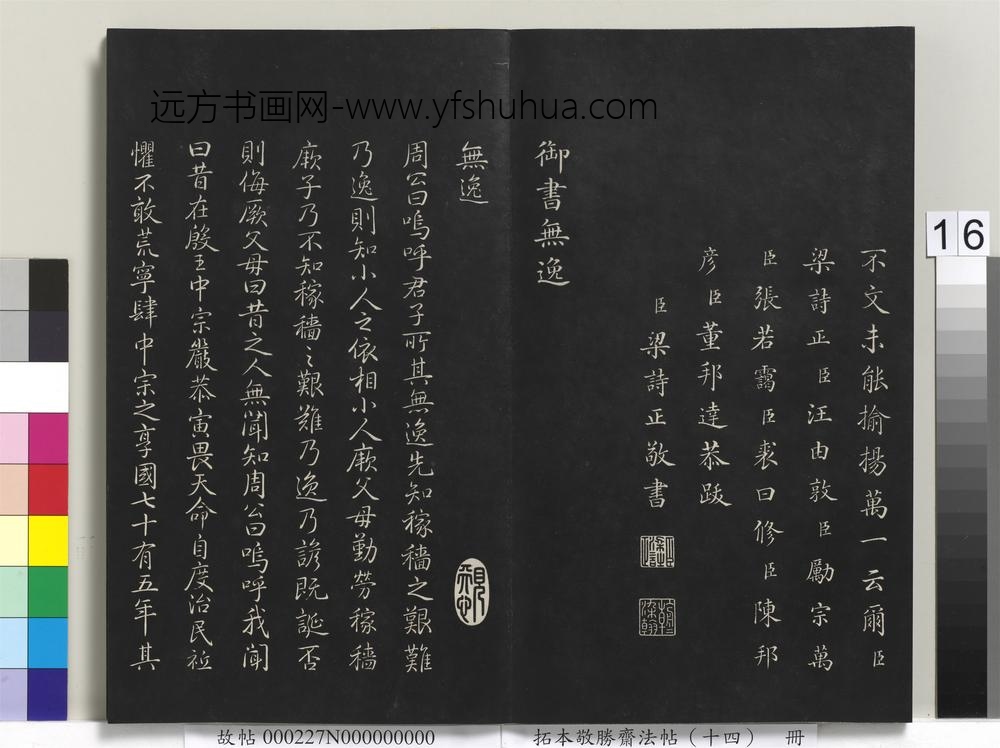 远方书画网-www.yfshuhua.com
不文未能揄揚萬一云爾臣
梁詩正臣汪由敦臣勵宗萬
臣張若靄臣裘曰修臣陳邦
彥臣董邦達恭跋
臣梁詩正敬書
御書無逸
無逸
周公曰嗚呼君子所其無逸先知稼穡之艱難
乃逸則知小人之依相小人厥父母勤勞稼穡
厥子乃不知稼穡之艱難乃逸乃諺既誕否
則侮厥父母曰昔之人無聞知周公曰嗚呼我聞
曰昔在殷王中宗嚴恭寅畏天命自度治民祗
懼不敢荒寧肆中宗之享國七十有五年其
16
故帖 000227N000000000
拓本敬勝齋法帖（十四） 冊